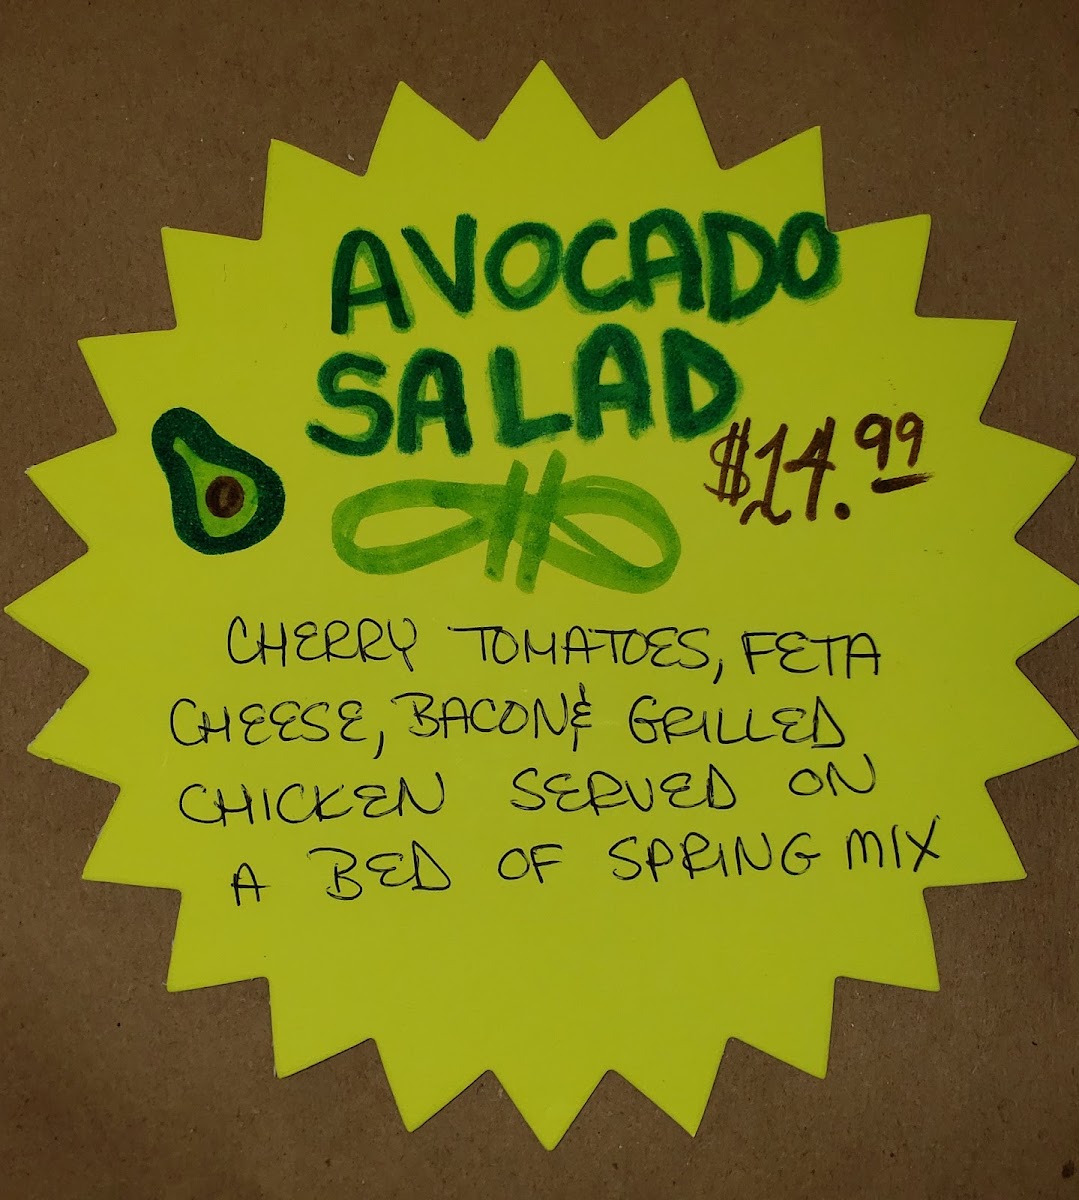 AVOCADO
SALAD
$14.99
CHERRY TOMATOES, FETA
CHEESE, BACON & GRILLED
CHICKEN SERVED ON
A BED OF SPRING MIX